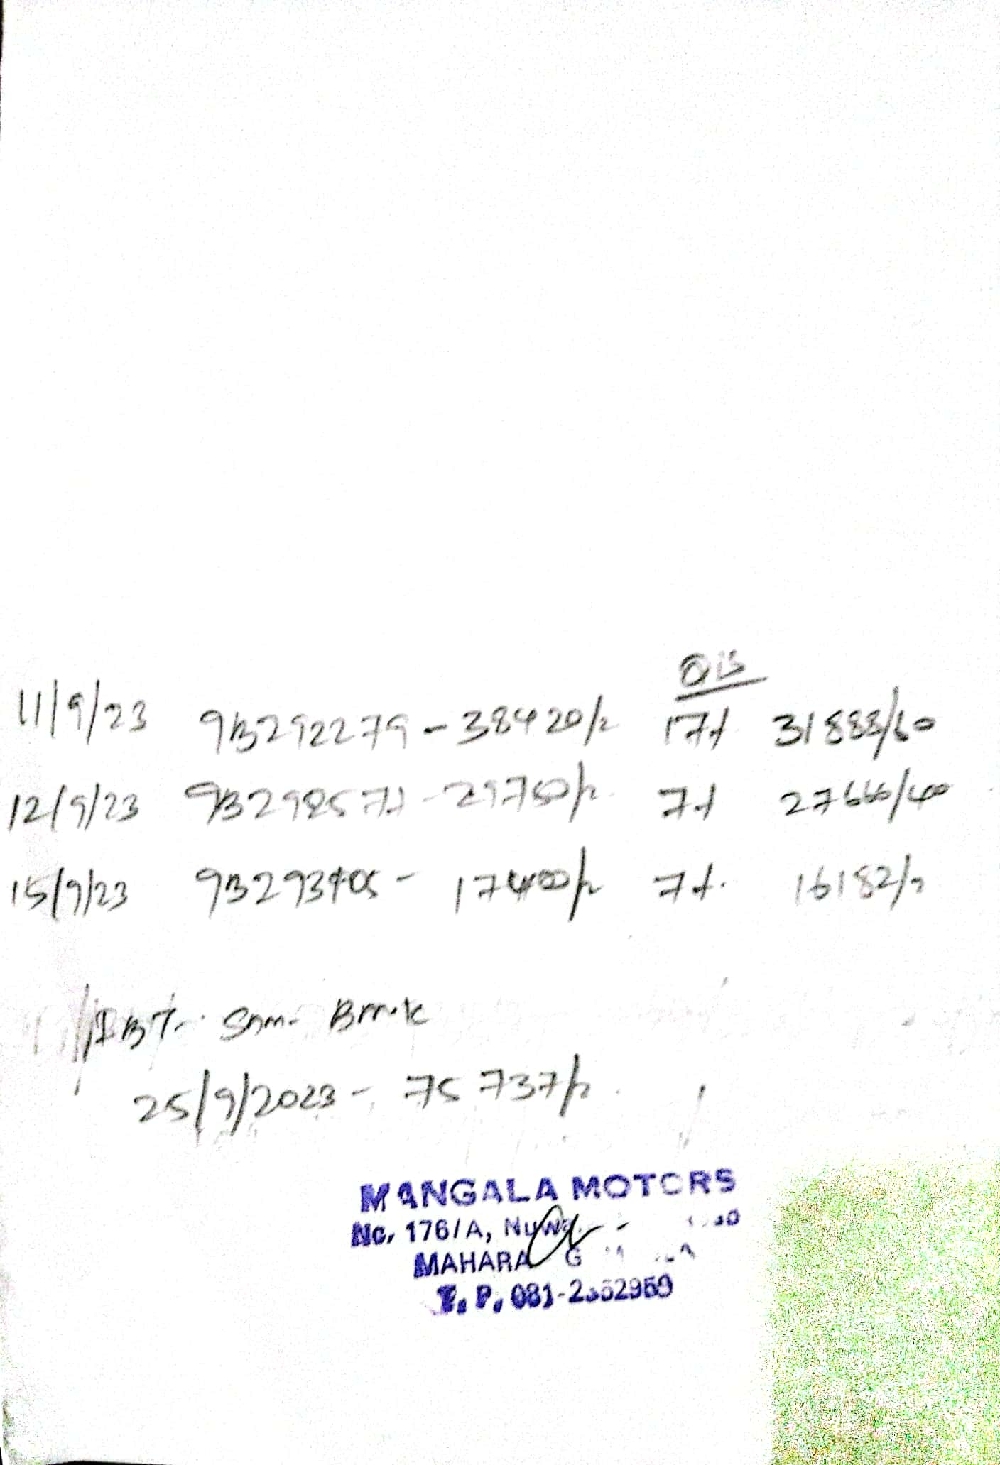 Dis
11/9/23 93292279 - 38420/= 17% 31888/60
12/9/23 93298571 - 29750/= 7% 27666/400
15/9/23 93293705 - 17400/= 7%. 16182/=
IBT. Sam. Bank
25/9/2023 - 75737/=
MANGALA MOTORS
No. 176/A,
MAHARA
T. P. 081-2352950